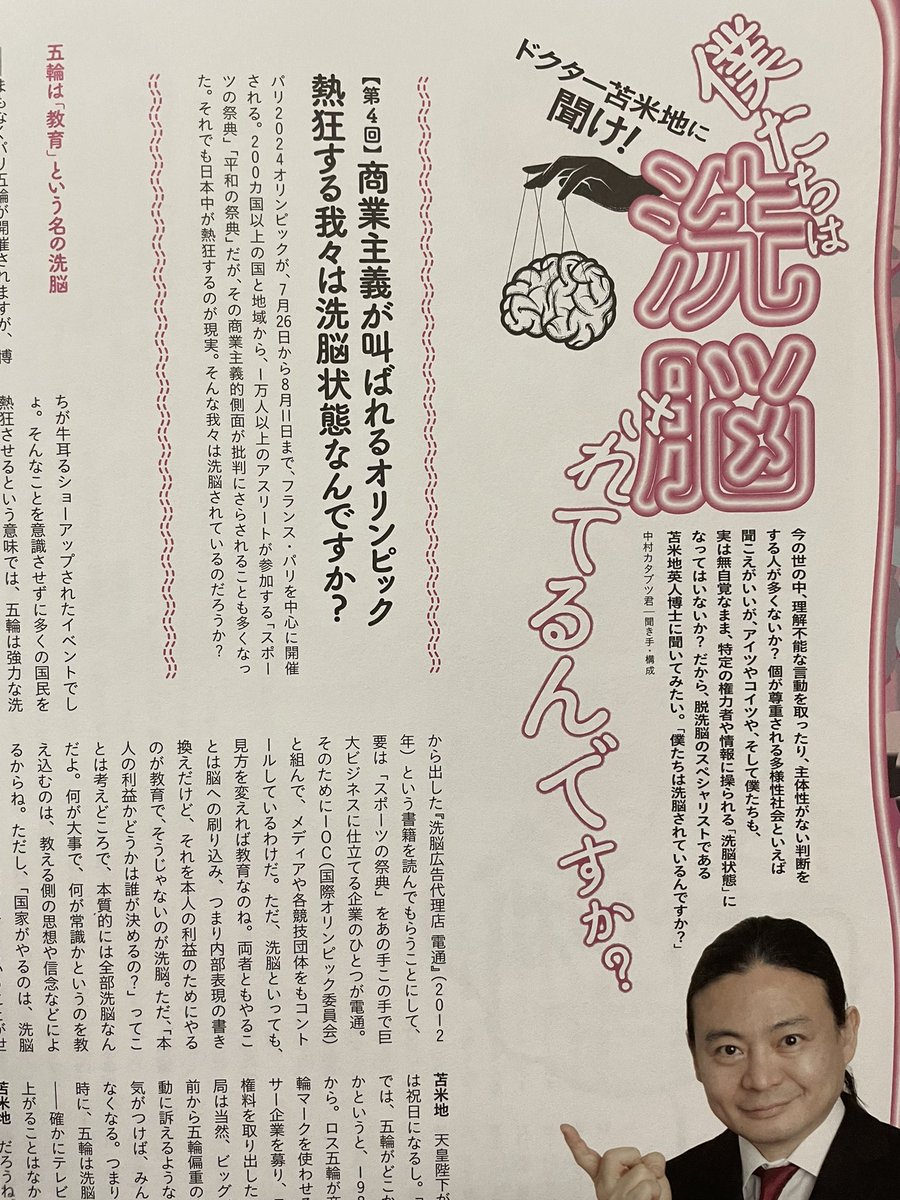 僕たちは
洗脳
されてるんですか?
ドクター苫米地に
聞け!
今の世の中、理解不能な言動を取ったり、主体性がない判断を
する人が多くないか? 個が尊重される多様性社会といえば
聞こえがいいが、アイツやコイツや、そして僕たちも、
実は無自覚なまま、特定の権力者や情報に操られる「洗脳状態」に
なってはいないか? だから、脱洗脳のスペシャリストである
苫米地英人博士に聞いてみたい。「僕たちは洗脳されているんですか?」
中村カタブツ君|聞き手・構成
【第4回】商業主義が叫ばれるオリンピック
熱狂する我々は洗脳状態なんですか?
パリ2024オリンピックが、7月26日から8月11日まで、フランス・パリを中心に開催
される。200カ国以上の国と地域から、1万人以上のアスリートが参加する「スポー
ツの祭典」「平和の祭典」だが、その商業主義的側面が批判にさらされることも多くなっ
た。それでも日本中が熱狂するのが現実。そんな我々は洗脳されているのだろうか?
五輪は「教育」という名の洗脳
まもなくパリ五輪が開催されますが、博
ちが牛耳るショーアップされたイベントでし
ょ。そんなことを意識させずに多くの国民を
熱狂させるという意味では、五輪は強力な洗
から出した『洗脳広告代理店 電通』(2012
年)という書籍を読んでもらうことにして、
要は「スポーツの祭典」をあの手この手で巨
大ビジネスに仕立てる企業のひとつが電通。
そのためにIOC(国際オリンピック委員会)
と組んで、メディアや各競技団体をもコント
ロールしているわけだ。ただ、洗脳といっても、
見方を変えれば教育なのね。両者ともやるこ
とは脳への刷り込み、つまり内部表現の書き
換えだけど、それを本人の利益のためにやる
のが教育で、そうじゃないのが洗脳。ただ、「本
人の利益かどうかは誰が決めるの?」ってこ
とは考えどころで、本質的には全部洗脳なん
だよ。何が大事で、何が常識かというのを教
え込むのは、教える側の思想や信念などによ
るからね。ただし、「国家がやるのは、洗脳
苫米地 天皇陛下が
は祝日になるし。「
では、五輪がどこか
かというと、198
から。ロス五輪が商
輪マークを使わせ
サー企業を募り、
権料を取り出した
局は当然、ビッグ
前から五輪偏重の
動に訴えるような
気がつけば、みん
なくなる。つまり
時に、五輪は洗脳
──確かにテレビ
上がることはなか
苫米地 だろうね